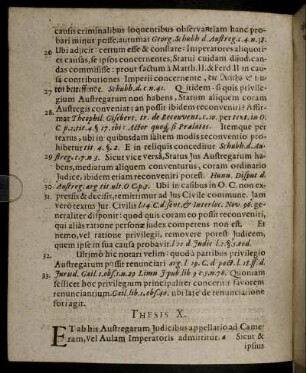 causis criminalibus loquentibus observantiam hanc pro-
bari iniquè posse, autumat Georg. Schubh. d. Austreg. c. 4. n. 31.
26 Ubi adjicit: certum esse & constare: Imperatores aliquoti-
es causas, se ipsos concernentes, Statui cuidam dijudi-
candas commisisse: prout factum à Matth. II. & Ferd. II in cau-
sa contributiones Imperii concernente,
Schubh. d. c. n. 41. Quitidem si quis privile-
gium Austregarum non habens, Statum aliquem coram
Austregis convenit: an possit ibidem reconveniri? Affir-
mat
Intimque per
textus, ubi in quibusdam saltem modis reconventio pro-
hibetur tit. 4. §. 2. Et in reliquis conceditur Schubh. d. Au-
29 streg. c. 7. n 3. Sicut vice versâ, Status Jus Austregarum ha-
bens, mediatum aliquem conventurus, coram ordinario
Judice, ibidem etiam reconveniri potest. Hunn. Disput d.
30 Austreg. arg tit ult. O C p. 2. Ubi in casibus in O. C. non ex-
31 pressis & decisis, remittimur ad Jus Civile commune. Jam
verò textus Jur. Civilis ge-
neraliter disponit: quod quis coram eo possit reconveniri,
qui aliàs ratione personæ judex competens non est. Et
nemo, vel ratione privilegii, removere potest Judicem,
quem ipse in sua causa probavit.
32 Ultimò hîc notari velim: quod à partibus privilegio
Austregarum possit renunciari
33 Quoniam
scilicet hoc privilegium principaliter concernit favorem
renunciantium. Gail. lib. 1. obs. 40. ubi latè de renunciatione
fori agit.
THESIS X.
ET ab his Austregarum Judicibus appellatio ad Came-
ram, vel Aulam Imperatoris admittitur. a Sicut &
ipsius